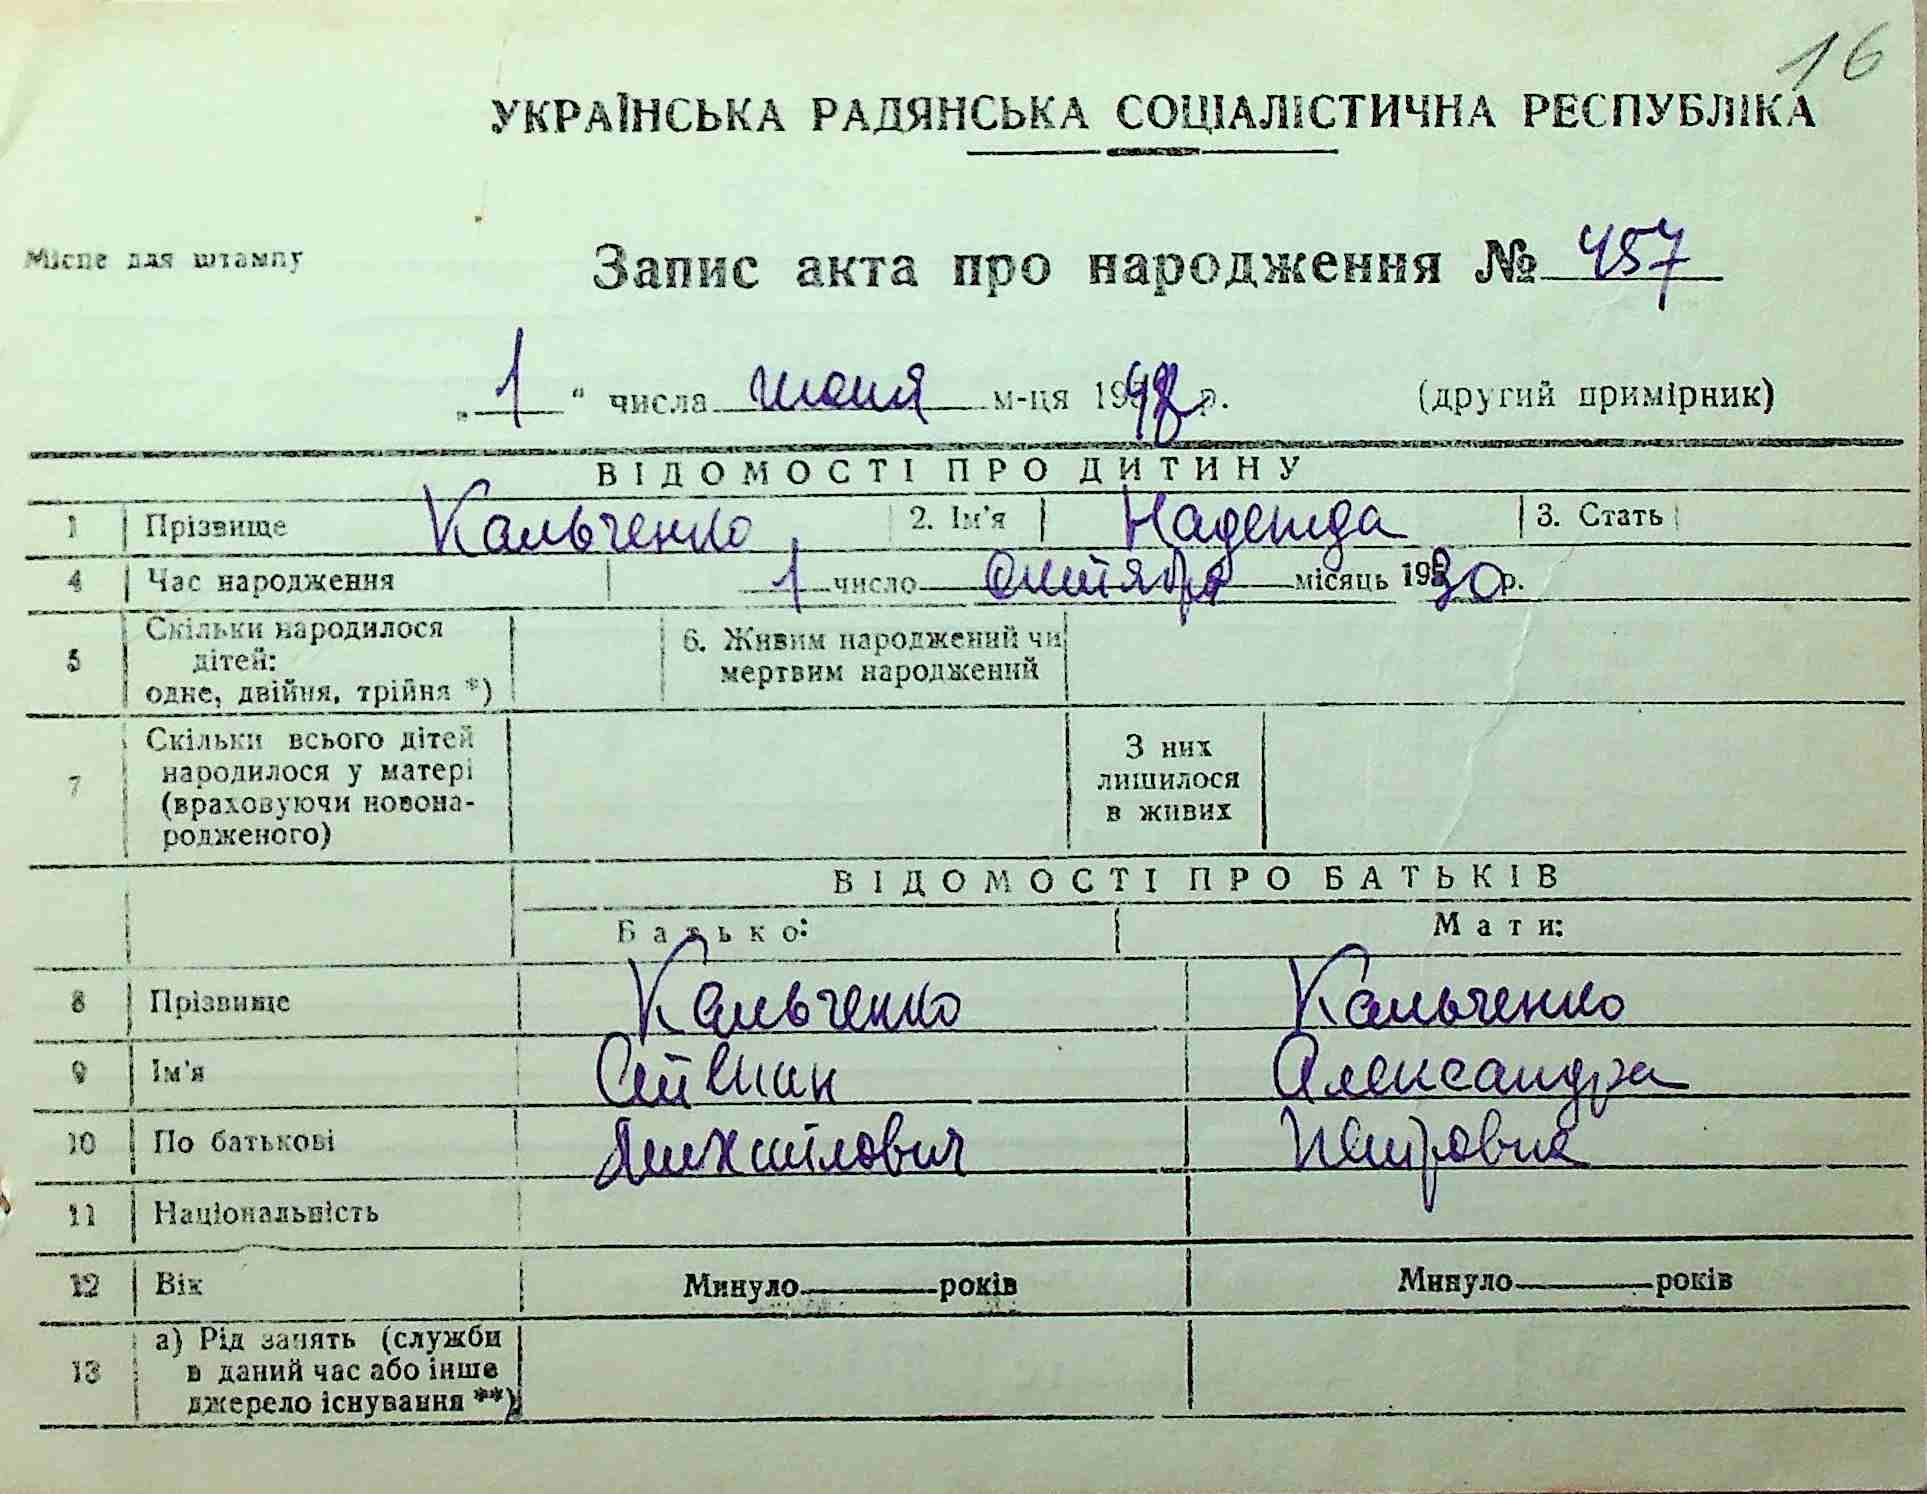 16
УКРАЇНСЬКА РАДЯНСЬКА СОЦІАЛІСТИЧНА РЕСПУБЛІКА
Місце для штампу
Запис акта про народження № 457
„ 1 “ числа июня м-ця 1948 р. (другий примірник)
ВІДОМОСТІ ПРО ДИТИНУ
1 Прізвище Кальченко 2. Ім'я Надежда 3. Стать
4 Час народження 1 число октября місяць 1930 р.
5 Скільки народилося дітей: одне, двійня, трійня *) 6. Живим народжений чи мертвим народжений
7 Скільки всього дітей народилося у матері (враховуючи новона-родженого) З них лишилося в живих
ВІДОМОСТІ ПРО БАТЬКІВ
Батько: Мати:
8 Прізвище Кальченко Кальченко
9 Ім'я Степан Александра
10 По батькові Михайлович Петровна
11 Національність
12 Вік Минуло років Минуло років
13 а) Рід занять (служби в даний час або інше джерело існування **)